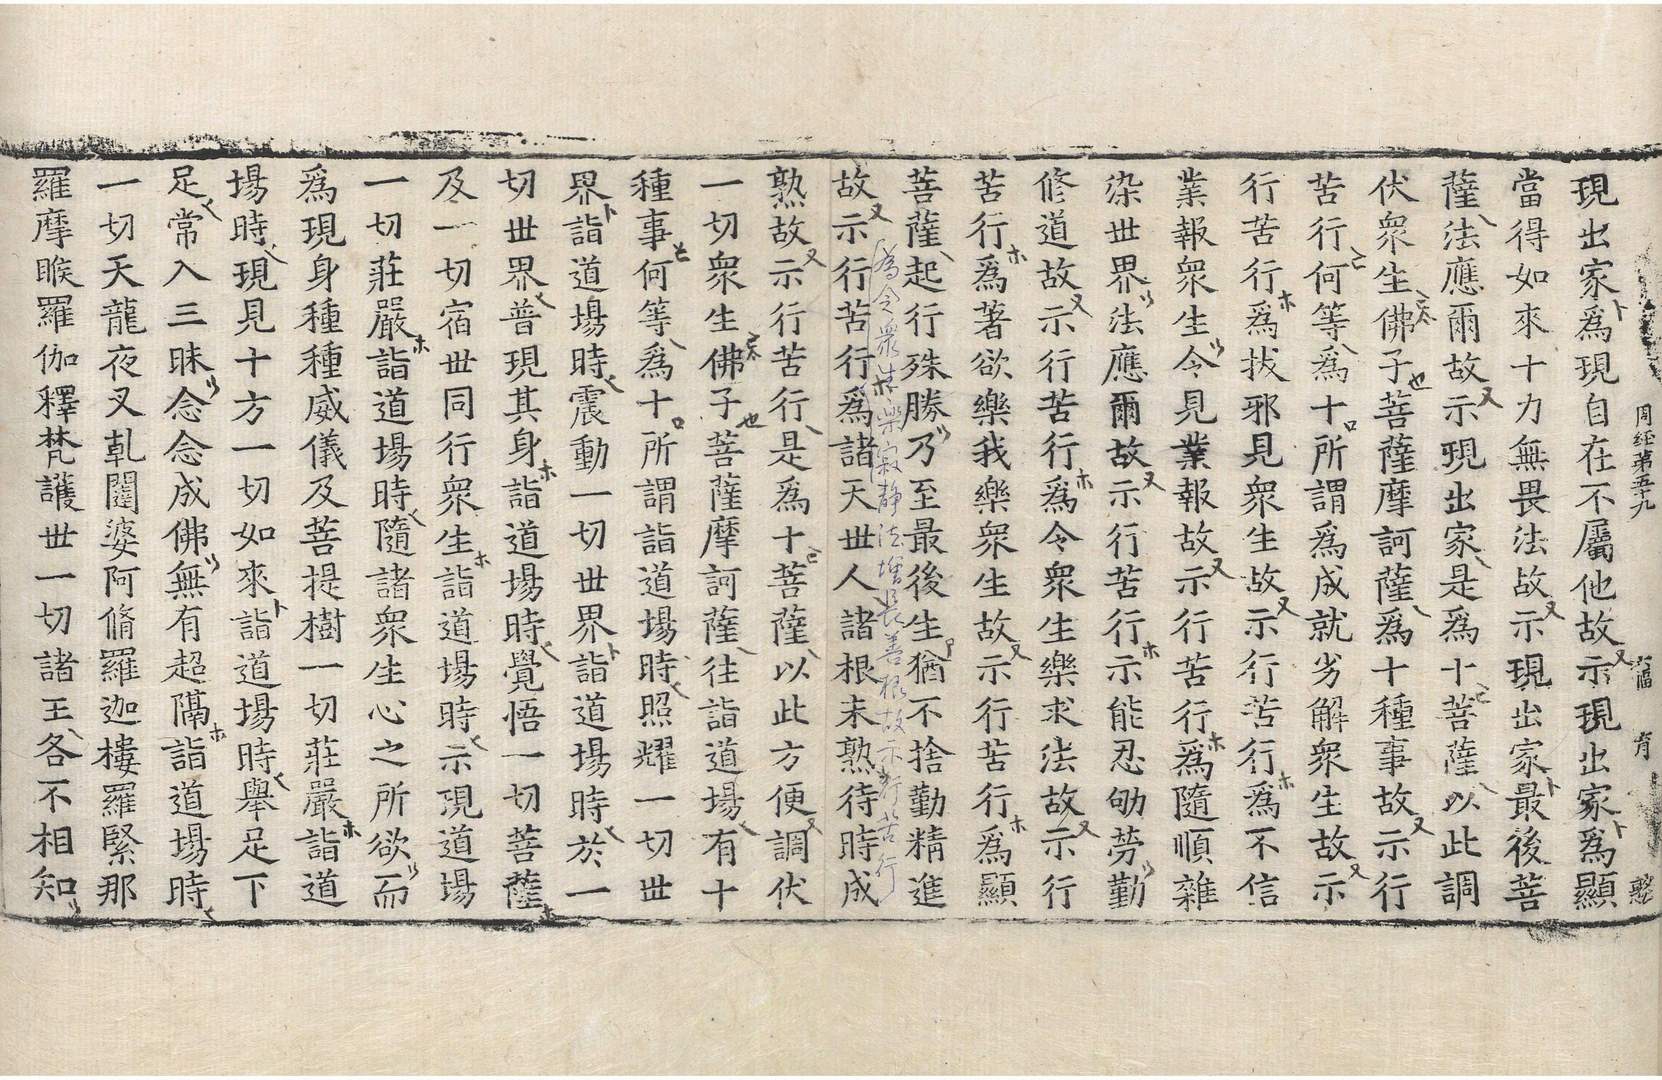 周經第五十九
現出家爲現自在不屬他故示現出家爲顯
當得如來十力無畏法故示現出家最後菩
薩法應爾故示現出家是爲十菩薩以此調
伏衆生佛子菩薩摩訶薩爲十種事故示行
苦行何等爲十所謂爲成就劣解衆生故示
行苦行爲拔邪見衆生故示行苦行爲不信
業報衆生令見業報故示行苦行爲隨順雜
染世界法應爾故示行苦行示能忍劬勞勤
修道故示行苦行爲令衆生樂求法故示行
苦行爲著欲樂我樂衆生故示行苦行爲顯
菩薩起行殊勝乃至最後生猶不捨勤精進
爲令衆生樂寂静法增長善根故示行苦行
故示行苦行爲諸天世人諸根未熟待時成
熟故示行苦行是爲十菩薩以此方便調伏
一切衆生佛子菩薩摩訶薩往詣道場有十
種事何等爲十所謂詣道場時照耀一切世
界詣道場時震動一切世界詣道場時於一
切世界普現其身詣道場時覺悟一切菩薩
及一切宿世同行衆生詣道場時示現道場
一切莊嚴詣道場時隨諸衆生心之所欲而
爲現身種種威儀及菩提樹一切莊嚴詣道
場時現見十方一切如來詣道場時舉足下
足常入三昧念念成佛無有超隔詣道場時
一切天龍夜叉乹闥婆阿脩羅迦樓羅緊那
羅摩睺羅伽釋梵護世一切諸王各不相知